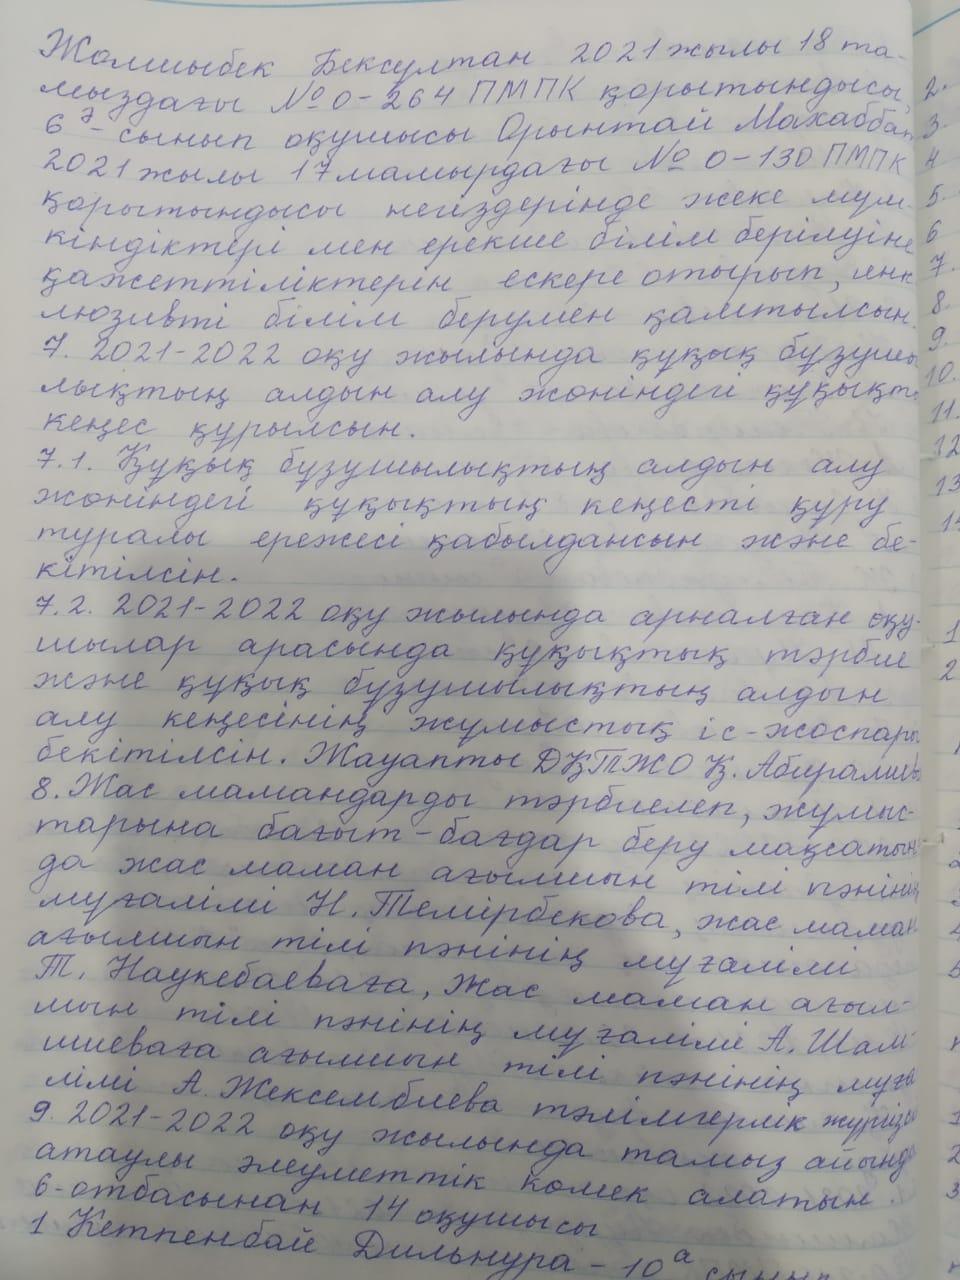 Жомшыбек Бексултан 2021 жылы 18 та-
мыздағы №0-264 ПМПК қорытындысы,
6ә-сынып оқушысы Орынтай Махаббат
2021 жылы 17 мамырдағы №0-130 ПМПК
қорытындысы негіздерінде жеке мүм-
кіндіктері мен ерекше білім берілуіне
қажеттіліктерін ескере отырып, инк
люзивті білім берумен қамтылсын.
7. 2021-2022 оқу жылында құқық бұзушы
лықтың алдын алу жөніндегі құқықты
кеңес құрылсын.
7.1. Құқық бұзушылықтың алдын алу
жөніндегі құқықтың кеңесті құру
туралы ережесі қабылдансын және бе-
кітілсін.
7.2. 2021-2022 оқу жылында арналған оқу-
шылар арасында құқықтық тәрбие
және құқық бұзушылықтың алдын
алу кеңесінің жұмыстық іс-жоспары
бекітілсін. Жауапты ДҚТЖО Қ.
8. Жас мамандарды тәрбиелеп, жұмыс-
тарына бағыт-бағдар беру мақсатын
да жас маман ағылшын тілі пәнінің
мұғалімі Н. Темірбекова, жас маман
ағылшын тілі пәнінің мұғалімі
Т. Наукебаеваға, Жас маман ағыл-
шын тілі пәнінің мұғалімі А. Шам
шиеваға ағылшын тілі пәнінің мұға
лімі А. Жексембиева тәлімгерлік жүргізсін
9. 2021-2022 оқу жылында тамыз айында
атаулы әлеуметтік көмек алатын
6-отбасынан 14 оқушысы
1 Кетпенбай Дильнура - 10а сынып
2.
3
4
5.
6
7.
8.
9.
10.
11.
12
13
14
1
2